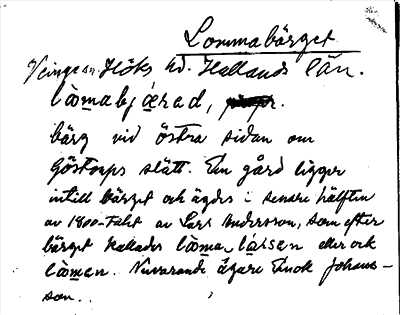 Lommabärget
Veinge sn Höks hd. Hallands län.
lòm̲abjæ̀rad,
bärg vid östra sidan om
Göstorps slätt. En gård ligger
intill bärget och ägdes i senare hälften
av 1800-talet av Lars Andersson, som efter
bärget kallades lòm̲a làrsen eller ock
lòm̲en. Nuvarande ägare Enok Johans-
son.